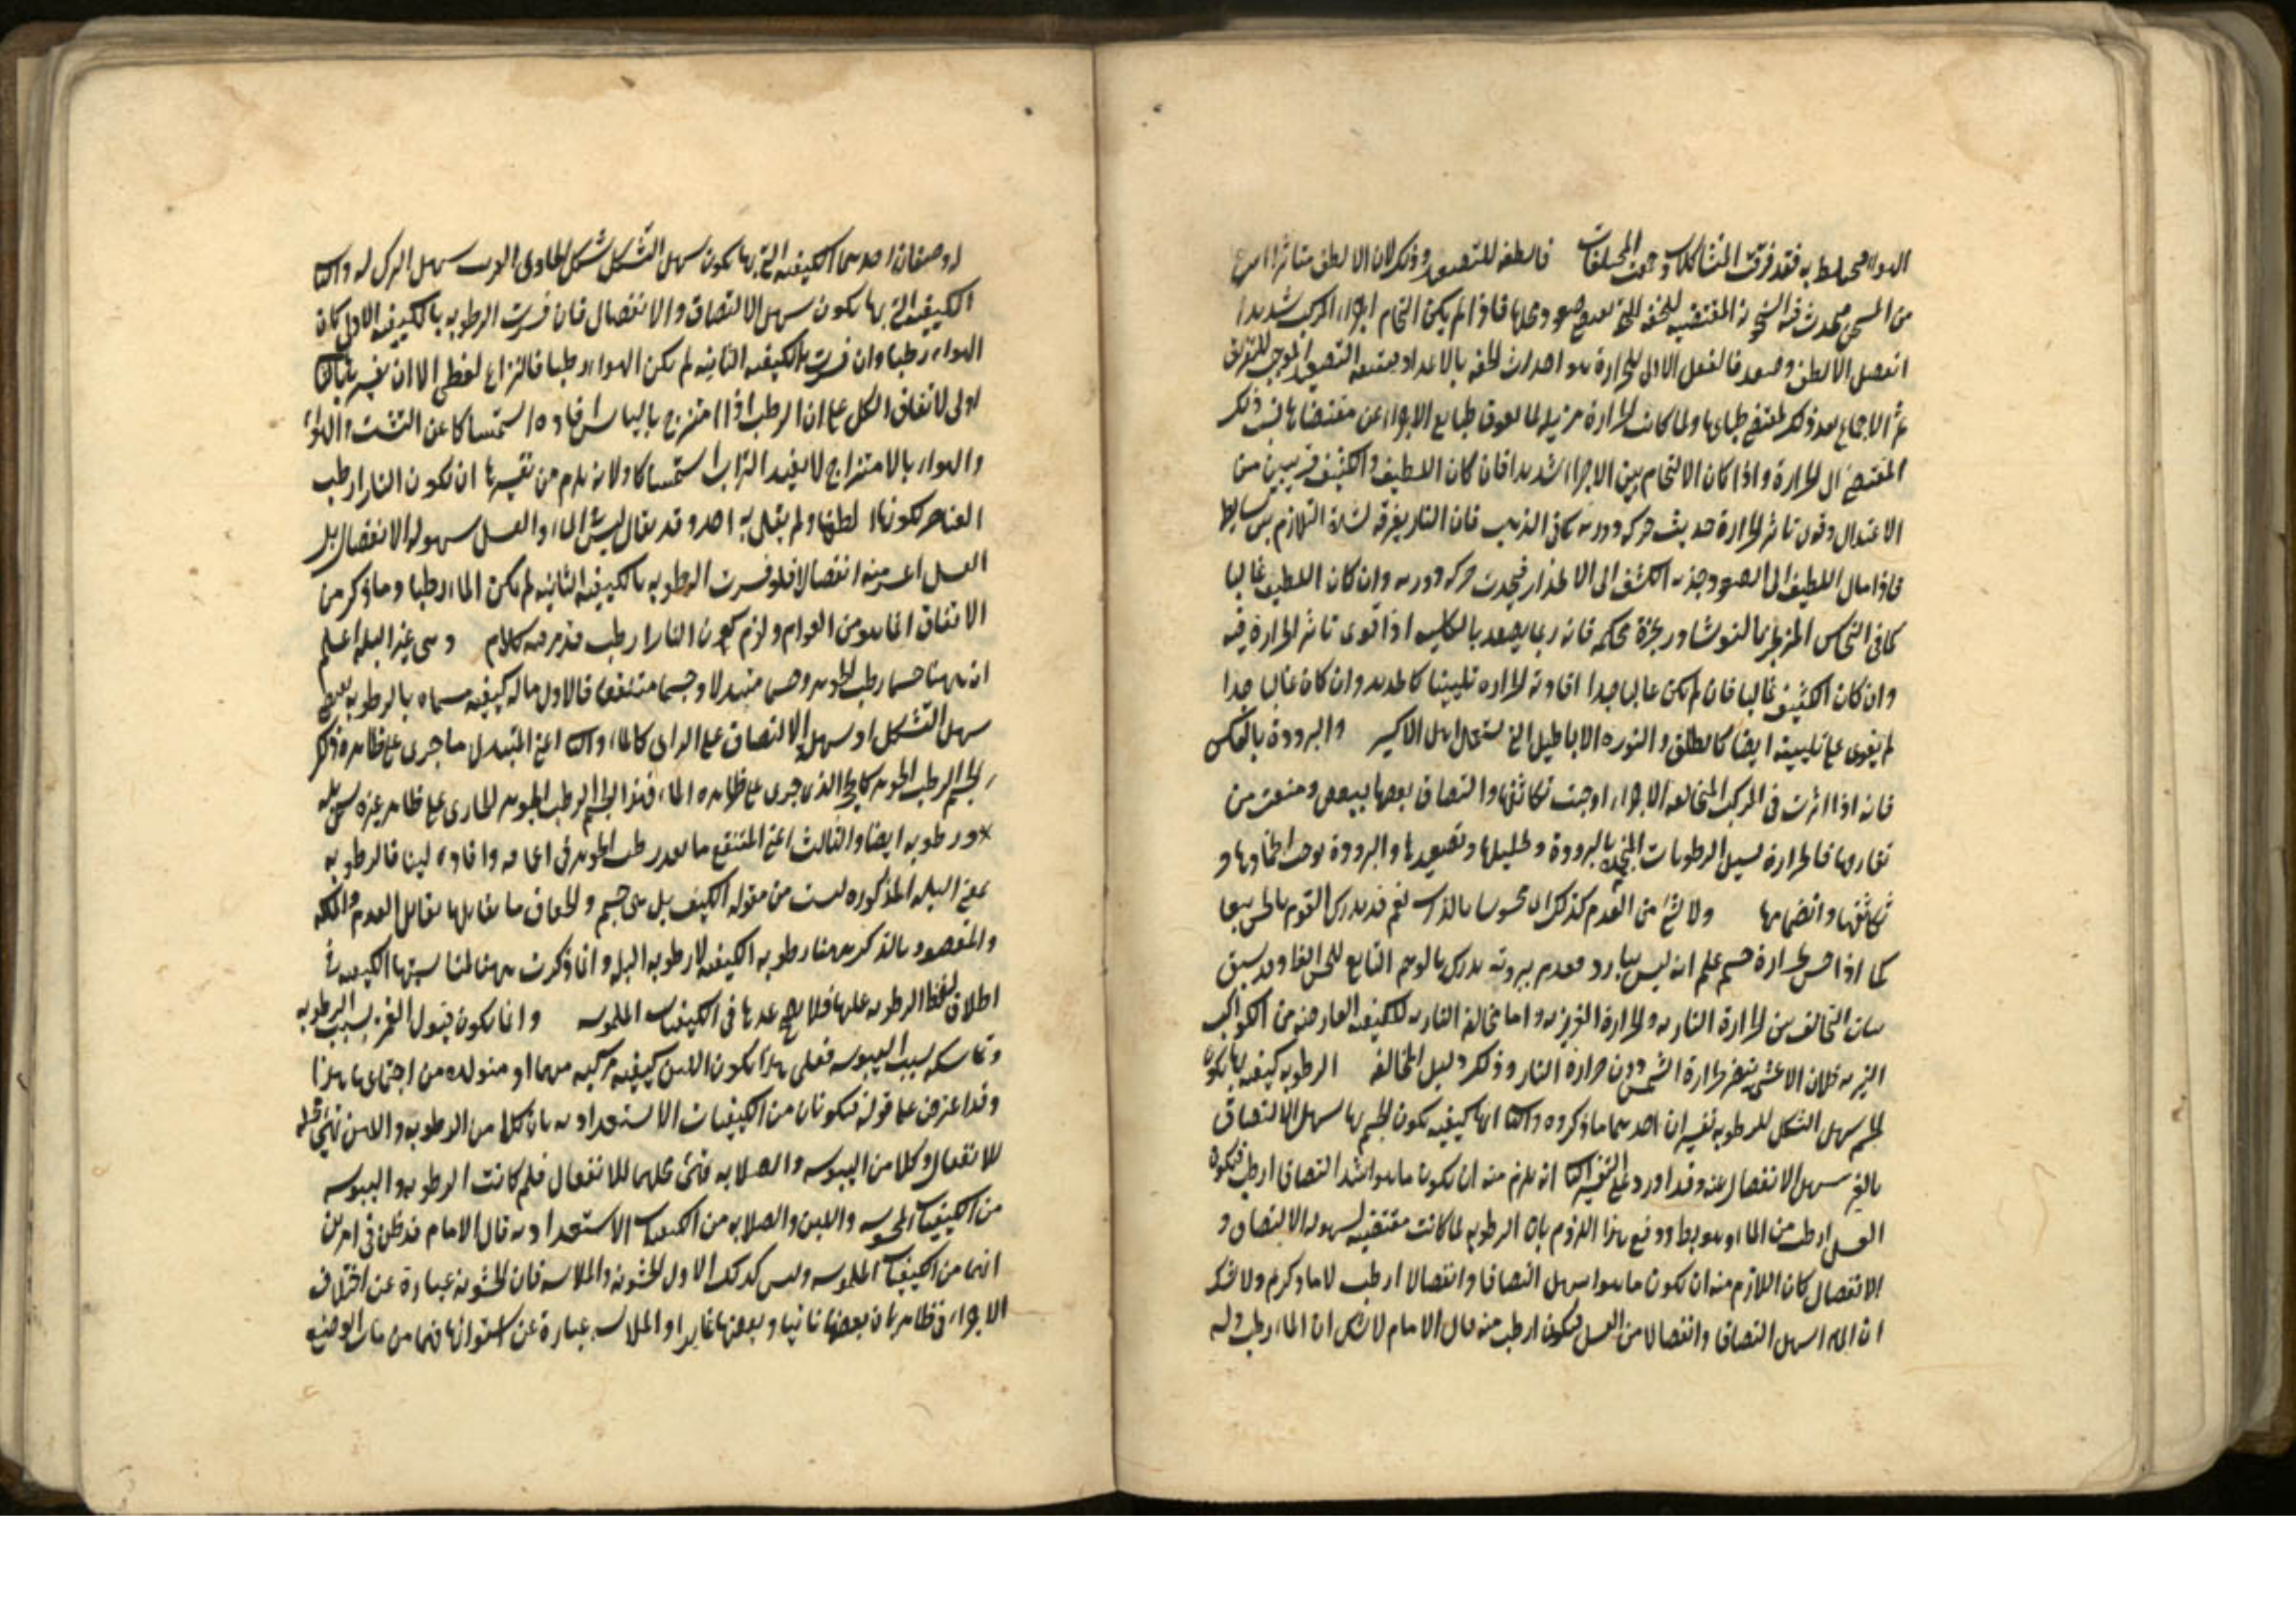 الهواء المختلط به فقد فرقت المتشاكلات وجمعت المختلفات فالطفه للتصعيد وذلك لان الالطف متاثرا اسرع
من المسخن فيحدث فيه السخونة المقتضيه للخفه التي تصعد محلها فاذا لم يكن التحام اجزاء المركب شديدا
انفصل الالطف وصعد فالفعل الاول للحرارة هو احداث الخفه بالاعداد يتبعه التصعيد الموجب للتفريق
ثم الاجتماع بعد ذلك لمقتضى طبايعها ولما كانت الحرارة مزيله لما يعوق طبايع الاجزاء عن مقتضاها نسب ذلك
المقتضى الى الحرارة واذا كان الالتحام بين الاجزاء شديدا فان كان اللطيف والكثيف قريبين من
الاعتدال وقوى تاثير الحرارة حدثت حركه دوريه كما في الذهب فان النار لا تفرقه لشدة التلازم بين بسايطه
فاذا مال اللطيف الى الصعود جذبه الكثيف الى الانحدار فيحدث حركه دوريه وان كان اللطيف غالبا
كما في النحاس المزنجر بالنوشادر محكمه فانه ربما يصعد بالكليه اذا قوى تاثير الحرارة فيه
وان كان الكثيف غالبا فان لم يكن غالبا جدا افادته الحراره تليينا كالحديد وان كان غالبا جدا
لم يقوى على تليينه ايضا كالطلق والنوره الا باطيل التي يستعملها اهل الاكسير والبرودة بالعكس
فانه اذا اثرت في المركب المتخالفه الاجزاء اوجبت تكاثفها والتصاق بعضها ببعض ومنعت من
تفارقها فالحرارة تسيل الرطوبات المنجمده بالبرودة وتحليلها وتصعيدها والبرودة توجب انجمادها و
تكاثفها وانضمامها ولا شئ من العدم كذلك اى محسوسا بالذات نعم قد يدرك العدم بالحس تبعا
كما اذا احس بحرارة جسم علم انه ليس ببارد فعدم برودته يدرك بالوهم التابع للحس الظاهر وقد سبق
بيان التخالف بين الحرارة الناريه والحرارة الغريزيه واما مخالفة الناريه للكيفيه الفايضه من الكواكب
النيره فلان الاعشى يتضرر بحرارة الشمس دون حرارة النار وذلك دليل المخالفه الرطوبه كيفيه بها يكون
الجسم سهل التشكل للرطوبه تفسيران احدهما ما ذكروه والثاني انها كيفيه يكون الجسم بها سهل الالتصاق
بالغير سهل الانفصال عنه وقد اورد على التفسير الثاني انه يلزم منه ان يكون ما هو اشد التصاقا ارطب فيكون
العسل ارطب من الماء وهو بط ودفع هذا اللزوم بان الرطوبه لما كانت مقتضيه لسهوله الالتصاق و
الانفصال كان اللازم منه ان يكون ما هو اسهل التصاقا وانفصالا ارطب لا ما ذكرتم ولا شك
ان الماء اسهل التصاقا وانفصالا من العسل فيكون ارطب منه قال الامام لا شك ان الماء رطب وله
له وصفان احدهما الكيفيه التي بها يكون سهل التشكل بشكل الحاوى القريب سهل الترك له والثاني
الكيفيه التي بها يكون سهل الالتصاق والانفصال فان فسرت الرطوبه بالكيفيه الاولى كان
الهواء رطبا وان فسرت بالكيفيه الثانيه لم يكن الهواء رطبا فالنزاع لفظى الا ان تفسيرها بالثاني
اولى لاتفاق الكل على ان الرطب اذا امتزج باليابس افاده استمساكا عن التشتت
والهواء بالامتزاج لا يفيد التراب استمساكا ولانه يلزم من تفسيرها ان تكون النار ارطب
العناصر لكونها الطفها ولم يقل به احد وقد يقال ليس للماء والعسل سهوله الانفصال بل
العسل اعسر منه انفصالا فلو فسرت الرطوبه بالكيفيه الثانيه لم يكن الماء رطبا وما ذكر من
الاتفاق انما هو من العوام ولزوم كون النار ارطب قد مر فيه كلام وهي غير البله اعلم
ان ههنا جسما رطب الجوهر وجسما مبتلا وجسما منتقعا فالاول ما له كيفيه مسماه بالرطوبه بمعنى
سهل التشكل او سهل الالتصاق على الراى كالماء والثاني اعني المبتل ما جرى على ظاهره ذلك
الجسم الرطب الجوهر كالحجر الذى جرى على ظاهره الماء فهذا الجسم الرطب الجوهر الجارى على ظاهر غيره يسمى بله
ورطوبه ايضا والثالث اعني المنتقع ما نفذ رطب الجوهر في اعماقه وافاده لينا فالرطوبه
بمعنى البله المذكوره ليست من مقوله الكيف بل هي جسم والجفاف ما يقابلها تقابل العدم والملكه
والمقصود بالذكر ههنا رطوبه الكيفيه لا رطوبه البله وانما ذكرت ههنا لمناسبتها الكيفيه في
اطلاق لفظ الرطوبه عليها فلا يصح عدها في الكيفيات الملموسه وانما يكون قبول الغمز بسبب الرطوبه
وتماسكه بسبب اليبوسه فعلى هذا يكون اللين كيفيه مركبه منهما او متولده من اجتماعهما هذا
وقد اعترض على قوله فيكونان من الكيفيات الاستعداديه بان كلا من الرطوبه واللين تهيئ محله
للانفعال وكلا من اليبوسه والصلابه تهيئ محلهما للانفعال فلم كانت الرطوبه واليبوسه
من الكيفيات المحسوسه واللين والصلابه من الكيفيات الاستعداديه قال الامام قد ظن في امرين
انهما من الكيفيات الملموسه وليس كذلك الاول الخشونه والملاسه فان الخشونه عبارة عن اختلاف
الاجزاء في ظاهر بان بعضها ناتيا وبعضها غايرا والملاسه عبارة عن استوائها فهما من باب الوضع